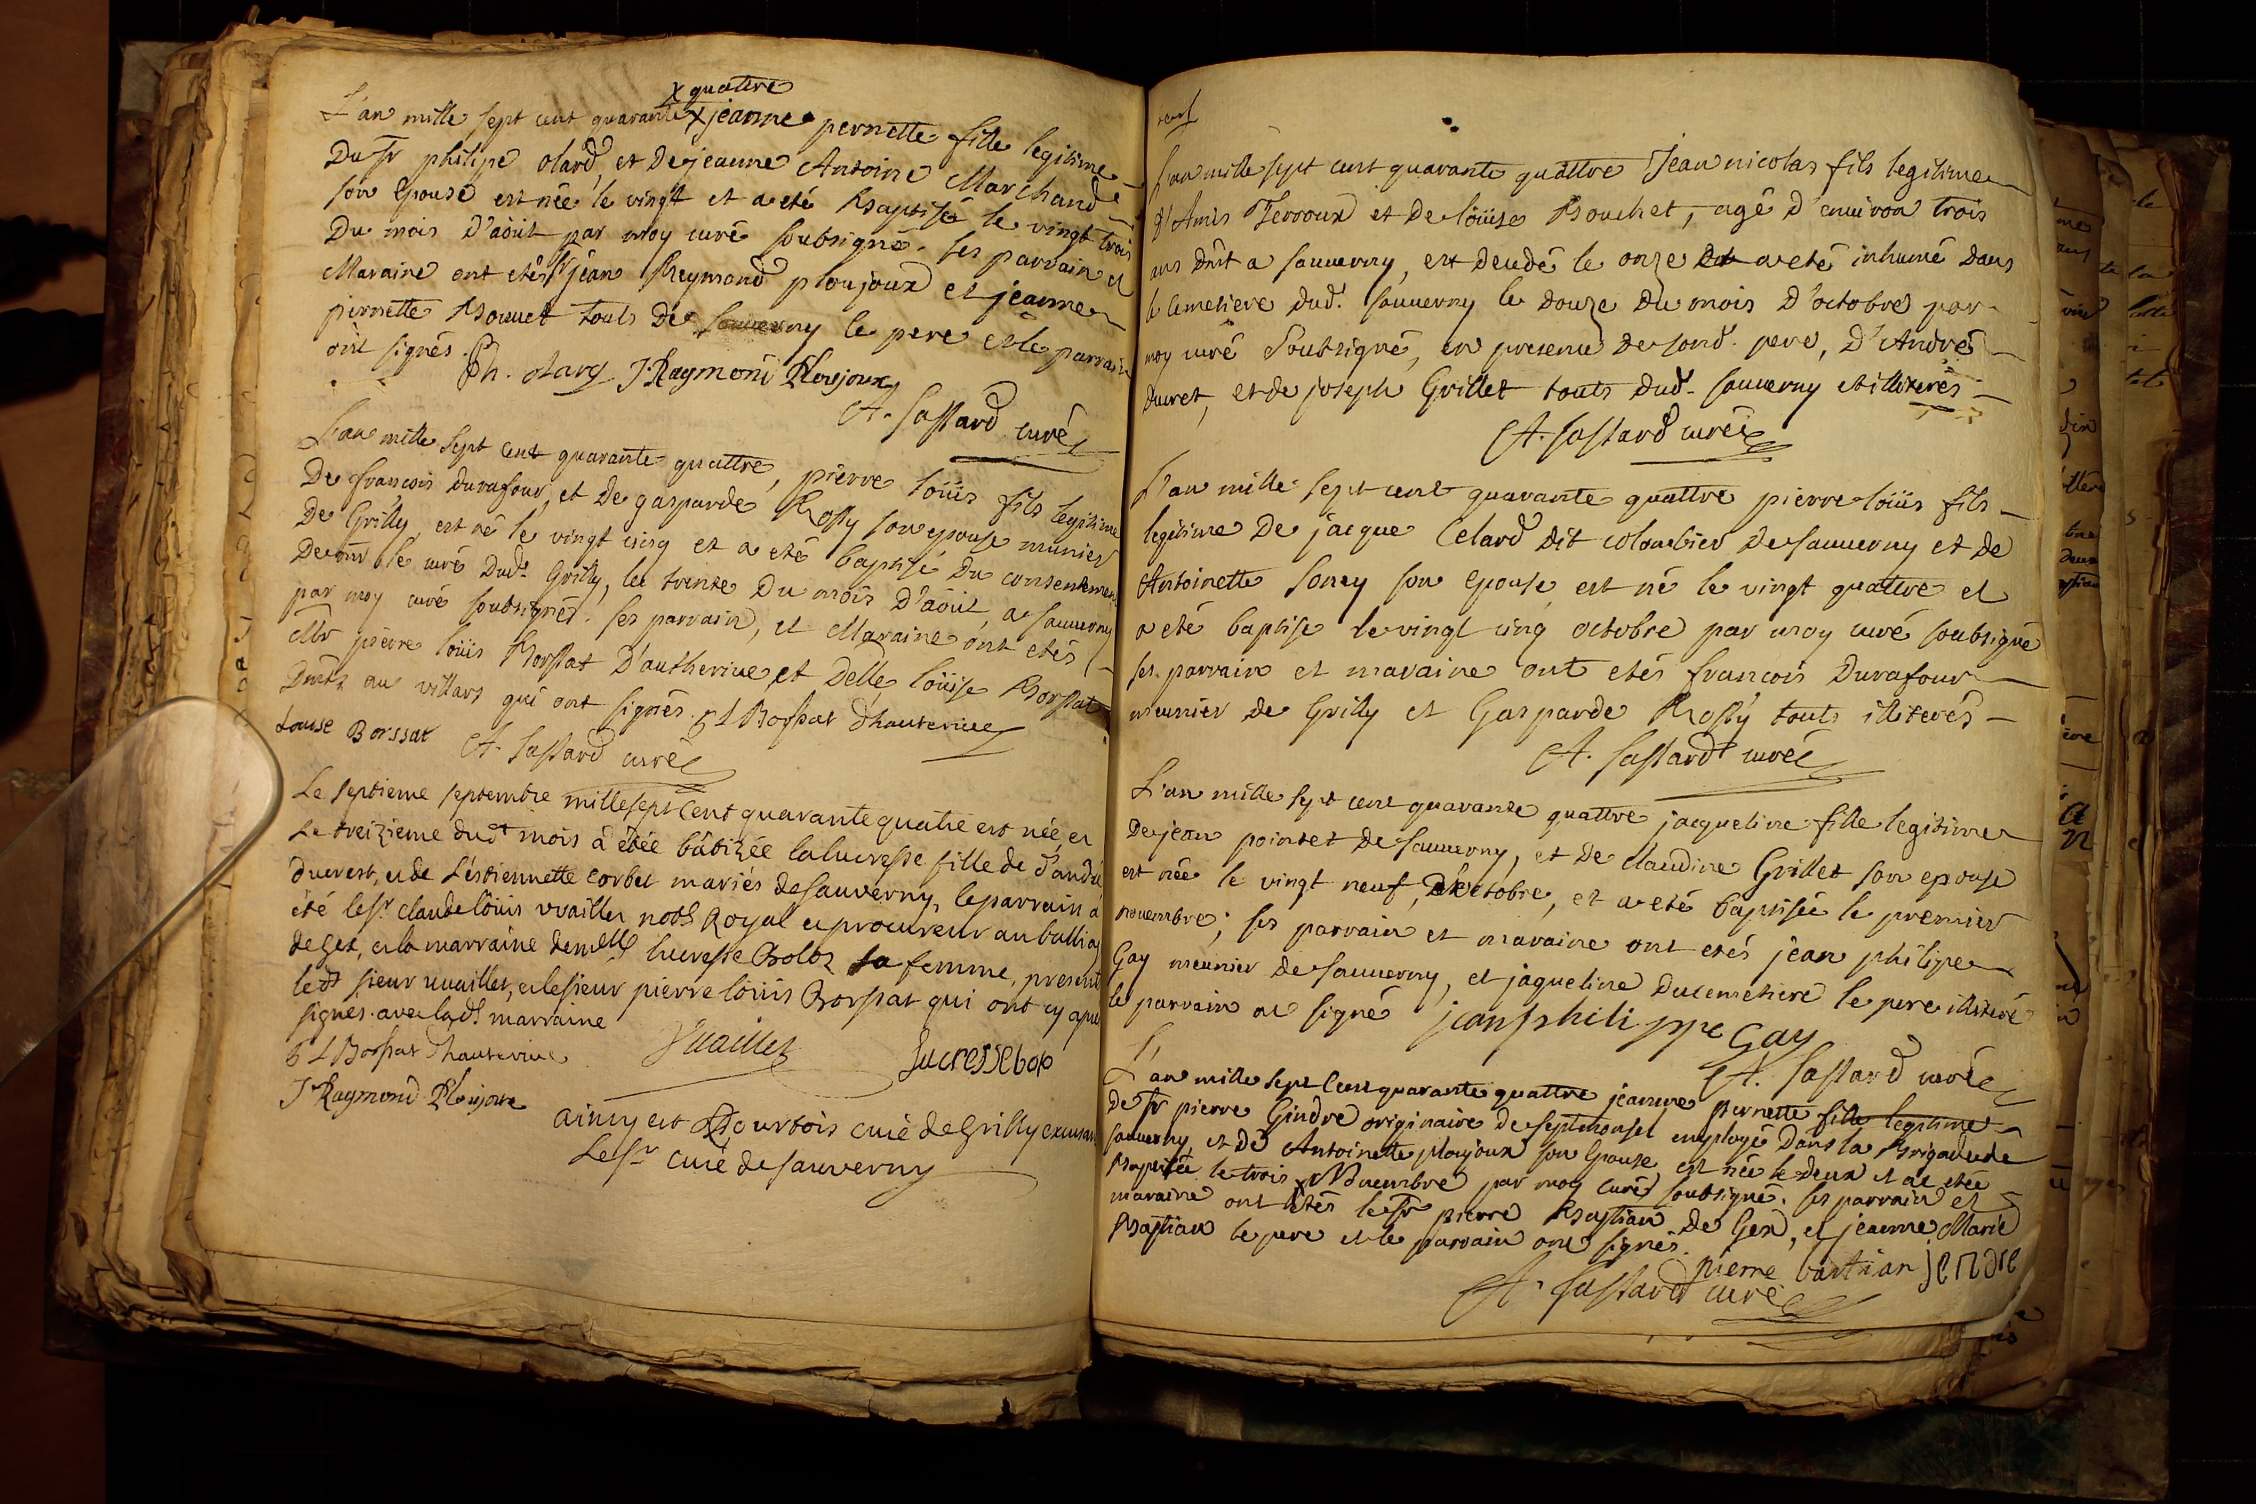 x quattre
L'an mille sept cent quarante x jeanne pernette fille legitime
Du Sr philipe olard, et De jeanne Antoine Marchand
son Epouse est née le vingt et a eté Baptisée le vingt trois
Du mois D'aôut par moy curé soubsigné. ses parrain et
Maraine ont etés Sr jean Reymond ploujoux et jeanne
pernette Bouvet touts De sauverny le pere et le parrain
ont signés.
Ph. olard J Raymond Ploujoux
A. Sassard curé
L'an mille sept cent quarante quattre, pierre loüis fils legitime
De francois Durafour, et De gasparde Rossy son epouse munier
De Grilly, est né le vingt cinq et a eté baptisé Du consentement
De mr le curé Dud. Grilly, le trente Du mois D'aôut, a sauverny
par moy curé soubsignés. ses parrain, et Maraine ont etés
Mr pierre loüis Borssat D'autherive et Delle loüise Borssat
Dmts au villars qui ont signés. P L Borssat dhauterive
Louise Borssat A. Sassard curé
Le septieme septembre mille sept Cent quarante quatre est née, et
Le treizieme dudt mois à étée bâtizée la lucresse fille de d'andré
ducrest, et de L'éstiennette corbet mariés de sauverny, le parrain a
été le sr claude loüis vuaillet notre Royal et procureur au balliage
de Gex, et la marraine demlle lucresse Boloz sa femme, present
le dt sieur vuaillet, et le sieur pierre loüis Borssat qui ont cy apres
signés avec la dt marraine
P L Borssat dhauterive Vuaillet lucresse bolo
J Raymond Ploujoux
ainsy est Courtois curé de Grilly excusant
Le Sr curé de sauverny
L'an mille sept cent quarante quattre Jean nicolas fils legitime
d'Amis Terroux et De loüise Bouchet, agé D'environ trois
ans Dmt a sauverny, est Decedé le onze et a eté inhumé Dans
le Cemetiere dud. sauverny le Douze Du mois D'octobre par
moy curé soubsigné, en presence de sond. pere, D'André
Ducret, et de joseph Grillet touts dud. sauverny et illiterés
A. Sassard curé
L'an mille sept cent quarante quattre pierre loüis fils
legitime De jacque Celard dit colombier De sauverny et de
Antoinette Soney son epouse est né le vingt quattre et
a eté baptise le vingt cinq octobre par moy curé soubsigné
ses parrain et maraine ont etés francois Durafour
meunier de Grilly et Gasparde Rossy touts illiterés
A. Sassard curé
L'an mille sept cent quarante quattre jacqueline fille legitime
De jean pointet De sauverny, et de claudine Grillet son epouse
est née le vingt neuf, D'octobre, et a eté baptisée le premier
novembre; ses parrain et maraine ont etés jean philipe
Gay meunier de sauverny, et jaqueline Ducemetiere le pere illiteré
le parrain a signé jean philippe Gay
A. Sassard curé
L'an mille sept Cent quarante quattre jeanne pernette fille legitime
De Sr pierre Gindre originaire De septmonsel employé Dans la Brigade de
sauverny, et Dé Antoinette plojoux son Epouse est née le deux et a etée
Baptisée le trois Novembre par moy curé soubsigné. ses parrain et
maraine ont Etés le Sr pierre Bastian De Gex, et jeanne Marie
Bastian le pere et le parrain ont signés.
pierre bastian jendre
A. Sassard curé